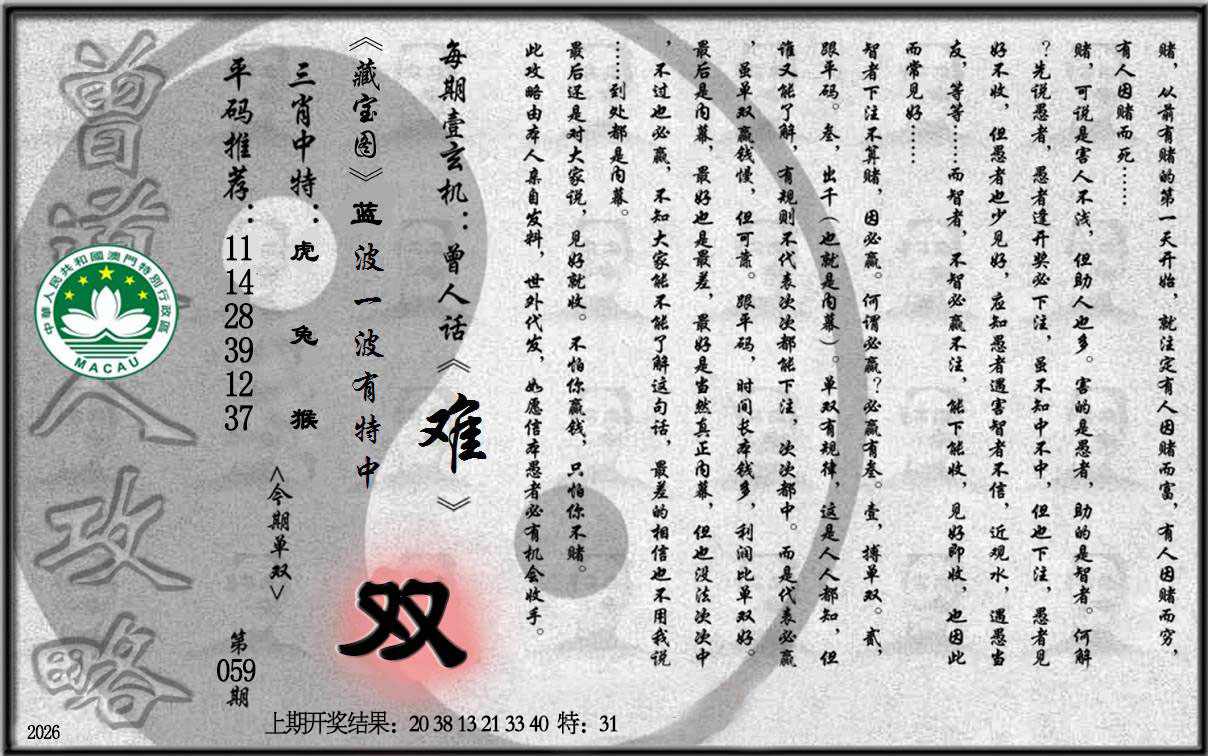 赌，从前有赌的第一天开始，就注定有人因赌而富，有人因赌而穷，
有人因赌而死……
赌，可说是害人不浅，但助人也多。害的是愚者，助的是智者。何解
？先说愚者，愚者逢开奖必下注，虽不知中不中，但也下注，愚者见
好不收，但愚者也少见好，应知愚者遇害智者不信，近观水，遇愚当
友，等等……而智者，不智必赢不注，能下能收，见好即收，也因此
而常见好……
智者下注不算赌，因必赢。何谓必赢？必赢有叁。壹，搏单双。贰，
跟平码。叁，出千（也就是内幕）。单双有规律，这是人人都知，但
谁又能了解，有规则不代表次次都能下注，次次都中。而是代表必赢
，虽单双赢钱慢，但可靠。跟平码，时间长本钱多，利润比单双好。
最后是内幕，最好也是最差，最好是当然真正内幕，但也没法次次中
，不过也必赢，不知大家能不能了解这句话，最差的相信也不用我说
……到处都是内幕。
最后还是对大家说，见好就收。不怕你赢钱，只怕你不赌。
此攻略由本人亲自发料，世外代发，如愿信本愚者必有机会收手。
每期壹玄机：曾人话《难》
《藏宝图》蓝波一波有特中
双
三肖中特：虎 兔 猴
<今期单双>
平码推荐：11 14 28 39 12 37
第059期
曾道人攻略
中華人民共和國澳門特別行政區
MACAU
上期开奖结果：20 38 13 21 33 40 特：31
2026